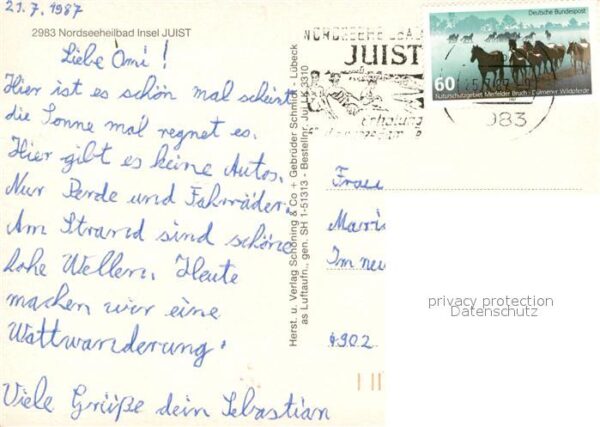 21.7.1987
2983 Nordseeheilbad Insel JUIST
Liebe Omi!
Hier ist es schön mal scheint
die Sonne mal regnet es.
Hier gibt es keine Autos.
Nur Perde und Fahrräder.
Am Strand sind schöne
hohe Wellen. Heute
machen wir eine
Wattwanderung.
Viele Grüße dein Sebastian
Herst. u. Verlag Schöning & Co + Gebrüder Schmidt - Lübeck
as Luftaufn., gen. SH 1-51313 - Bestellnr. Ju
JUIST
Erholung
983
Deutsche Bundespost
60
Naturschutzgebiet Merfelder Bruch · Dülmener Wildpferde
Frau
Im neu
4902
privacy protection
Datenschutz